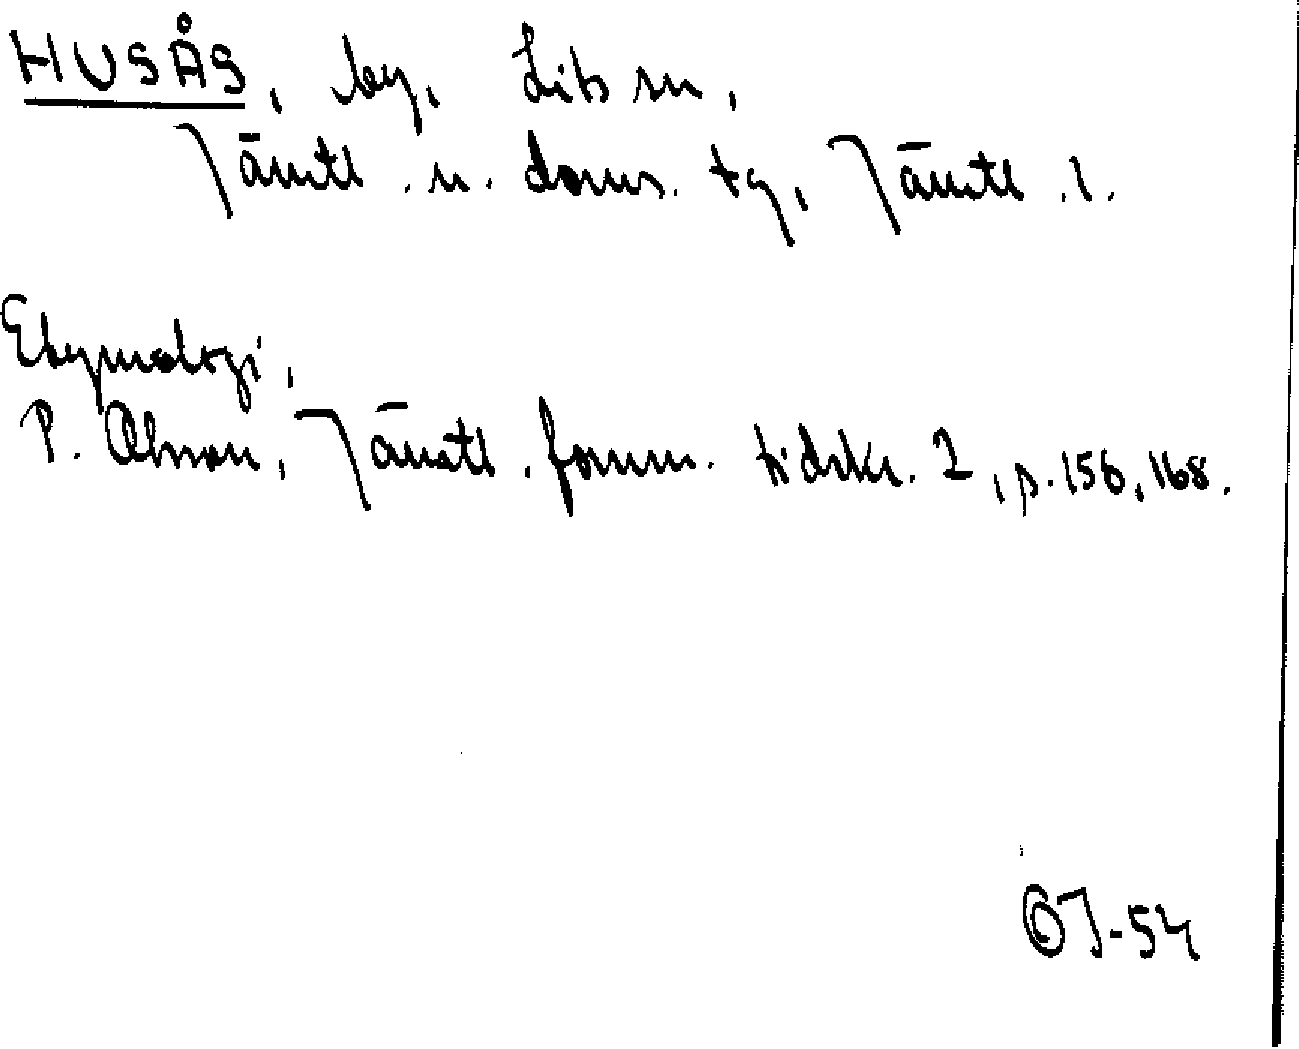 HUSÅS, by, Lits sn,
Jämtl. n. doms. tg, Jämtl. l.
Etymologi,
P. Olsson, Jämtl. fornm. tidskr. 2, p. 156, 168.
-54